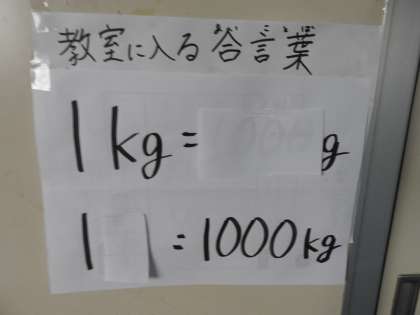 教室に入る合言葉
1kg= g
1 =1000kg